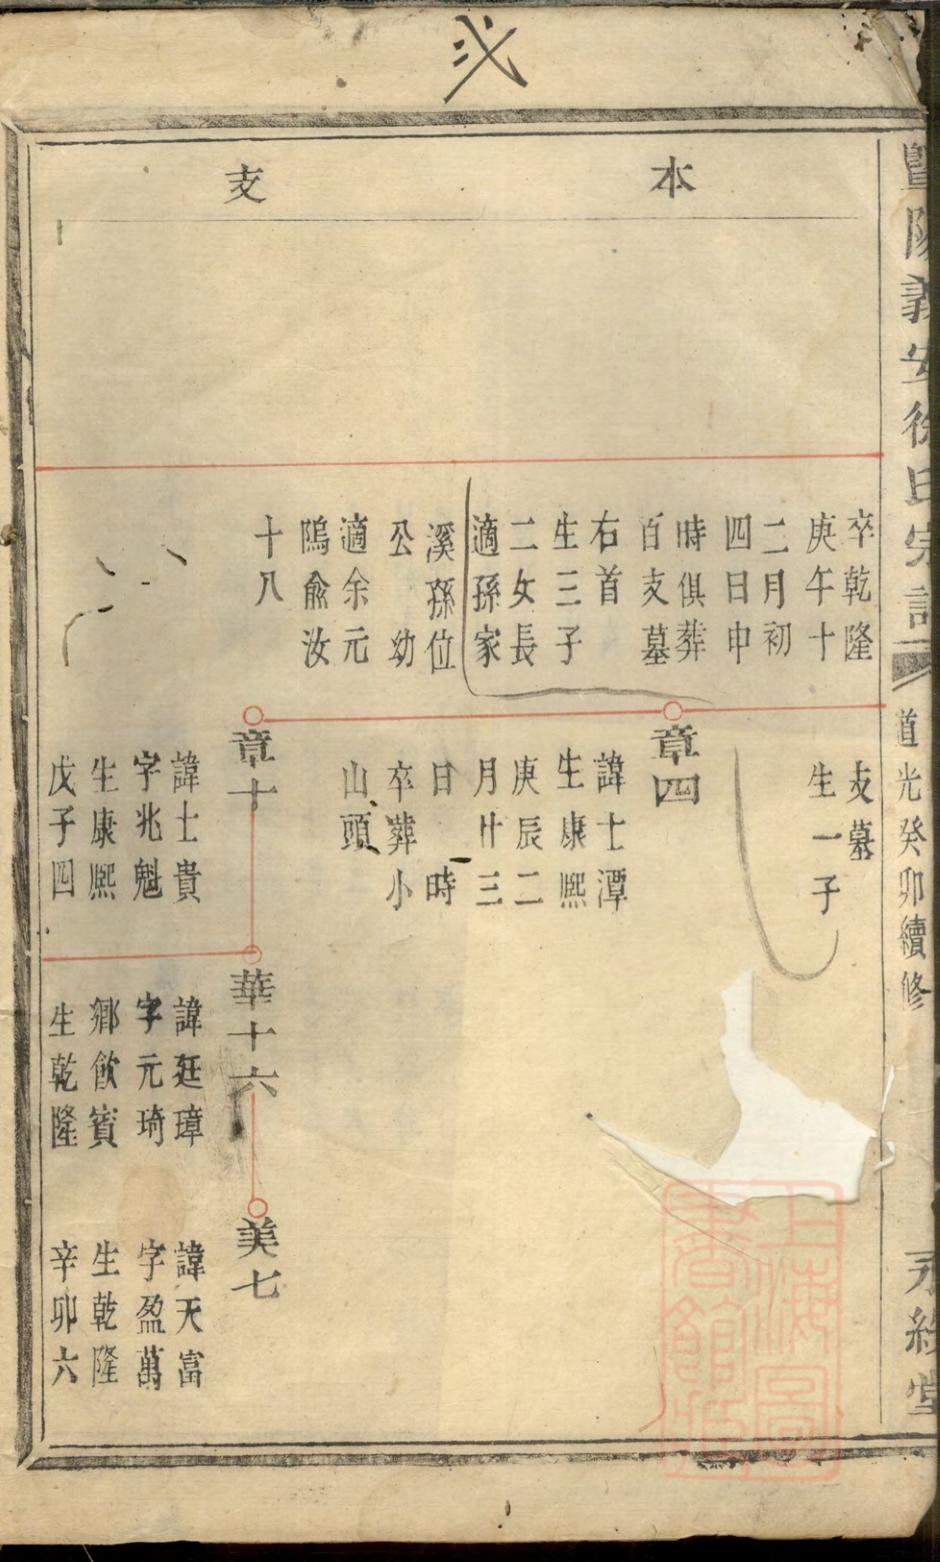 弍
暨陽義安徐氏宗譜
道光癸卯續修
永 堂
本支
卒乾隆
庚午十
二月初
四日申
時俱葬
百支墓
右首
生三子
二女長
適孫家
溪孫位
公 幼
適余元
隝兪汝
十八
支墓
生一子
章四
諱士潭
生康熙
庚辰二
月廿三
日 時
卒葬小
山頭
章十
諱士貴
字兆魁
生康熙
戊子四
華十六
諱廷璋
字元琦
鄉飲賓
生乾隆
美七
諱天富
字盈萬
生乾隆
辛卯六
上海圖書館藏